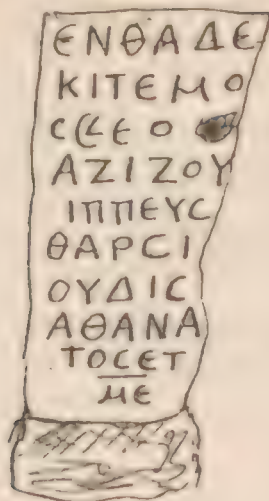 ΕΝΘΑΔΕ
ΚΙΤΕΜΟ
ΑΖΙΖΟΥ
ΙΠΠΕΥϹ
ΘΑΡϹΙ
ΟΥΔΙϹ
ΑΘΑΝΑ
ΤΟϹΕΤ
ΜΕ